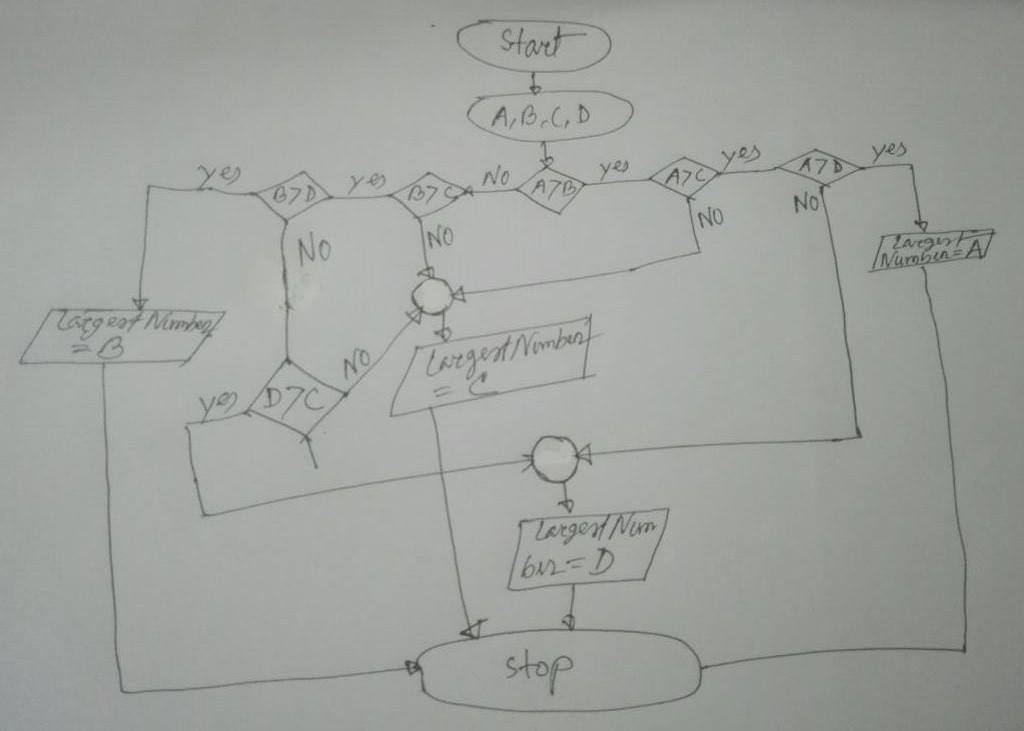 Start
A, B, C, D
yes
B>D
yes
B>C
No
A>B
yes
A>C
yes
A>D
yes
NO
NO
NO
NO
Largest Number
= B
Largest
Number = A
Largest Number
= C
yes
D>C
NO
Largest Num
ber = D
stop